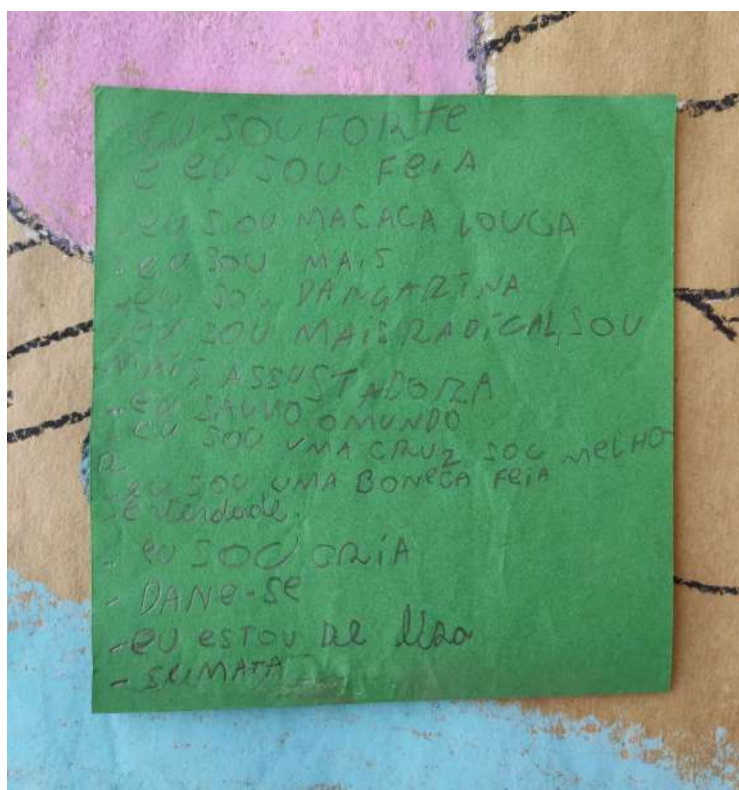 EU SOU FORTE
E EU SOU FEIA
- EU SOU MACACA LOUCA
- EU SOU MAIS
- EU SOU DANÇARINA
- EU SOU MAIS RADICAL, SOU
MAIS ASSUSTADORA
- EU SAUVO O MUNDO
- EU SOU UMA CRUZ SOU MELHO
R
- EU SOU UMA BONECA FEIA
- É verdade.
- EU SOU CRIA
- DANE-SE
- EU ESTOU DE